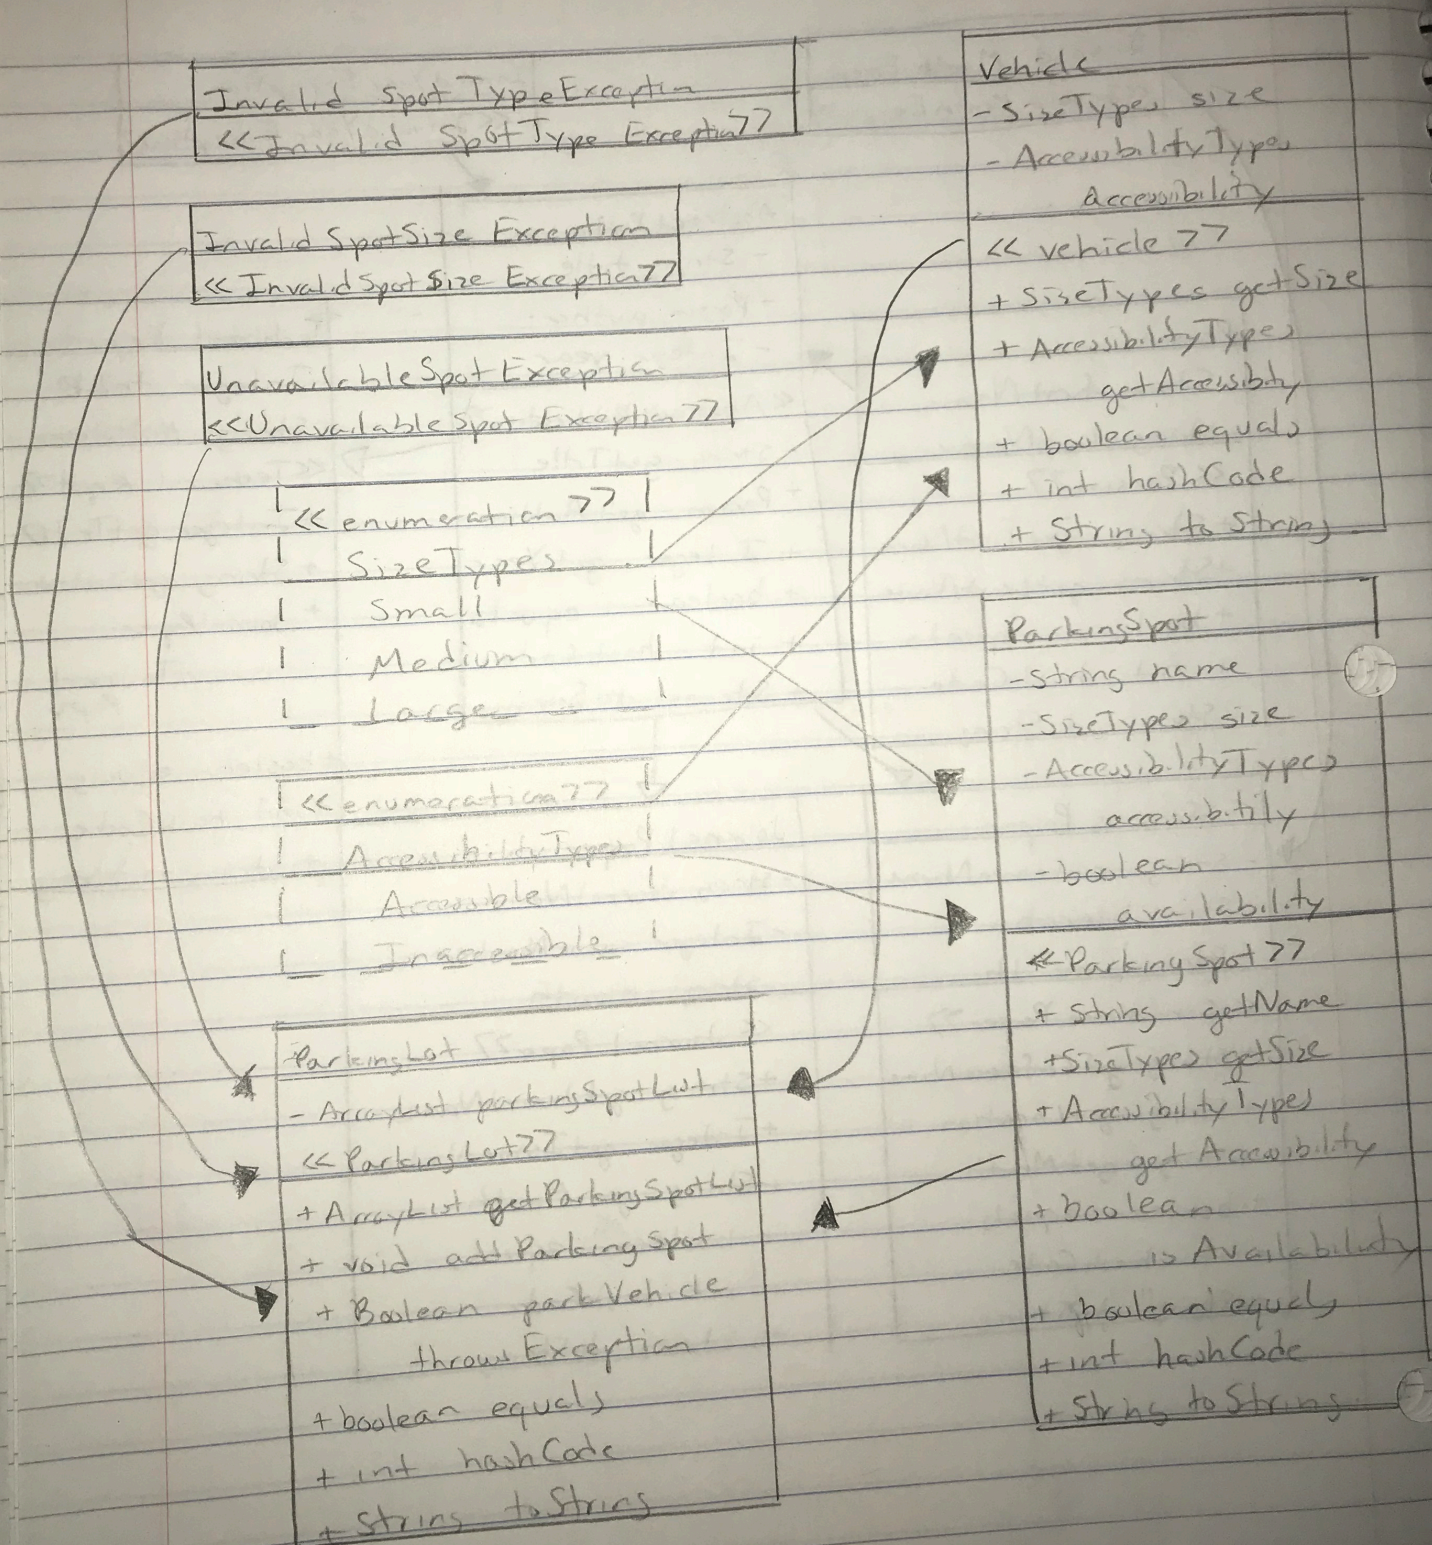 Invalid SpotTypeException
<<Invalid SpotType Exception>>
InvalidSpotSize Exception
<<InvalidSpotSize Exception>>
UnavailableSpotException
<<UnavailableSpot Exception>>
<<enumeration>>
SizeTypes
Small
Medium
Large
<<enumeration>>
AccessibilityTypes
Accessible
Inaccessible
ParkingLot
- ArrayList parkingSpotList
<<ParkingLot>>
+ ArrayList getParkingSpotList
+ void addParkingSpot
+ Boolean parkVehicle
throws Exception
+ boolean equals
+ int hashCode
+ String toString
Vehicle
- SizeTypes size
- AccessibilityTypes
accessibility
<< vehicle >>
+ SizeTypes getSize
+ AccessibilityTypes
getAccessibity
+ boolean equals
+ int hashCode
+ String to String
ParkingSpot
- String name
- SizeTypes size
- AccessibilityTypes
accessibitily
- boolean
availability
<<ParkingSpot>>
+ String getName
+ SizeTypes getSize
+ AccessibilityTypes
get Accessibility
+ boolean
is Availability
+ boolean equals
+ int hashCode
+ String toString